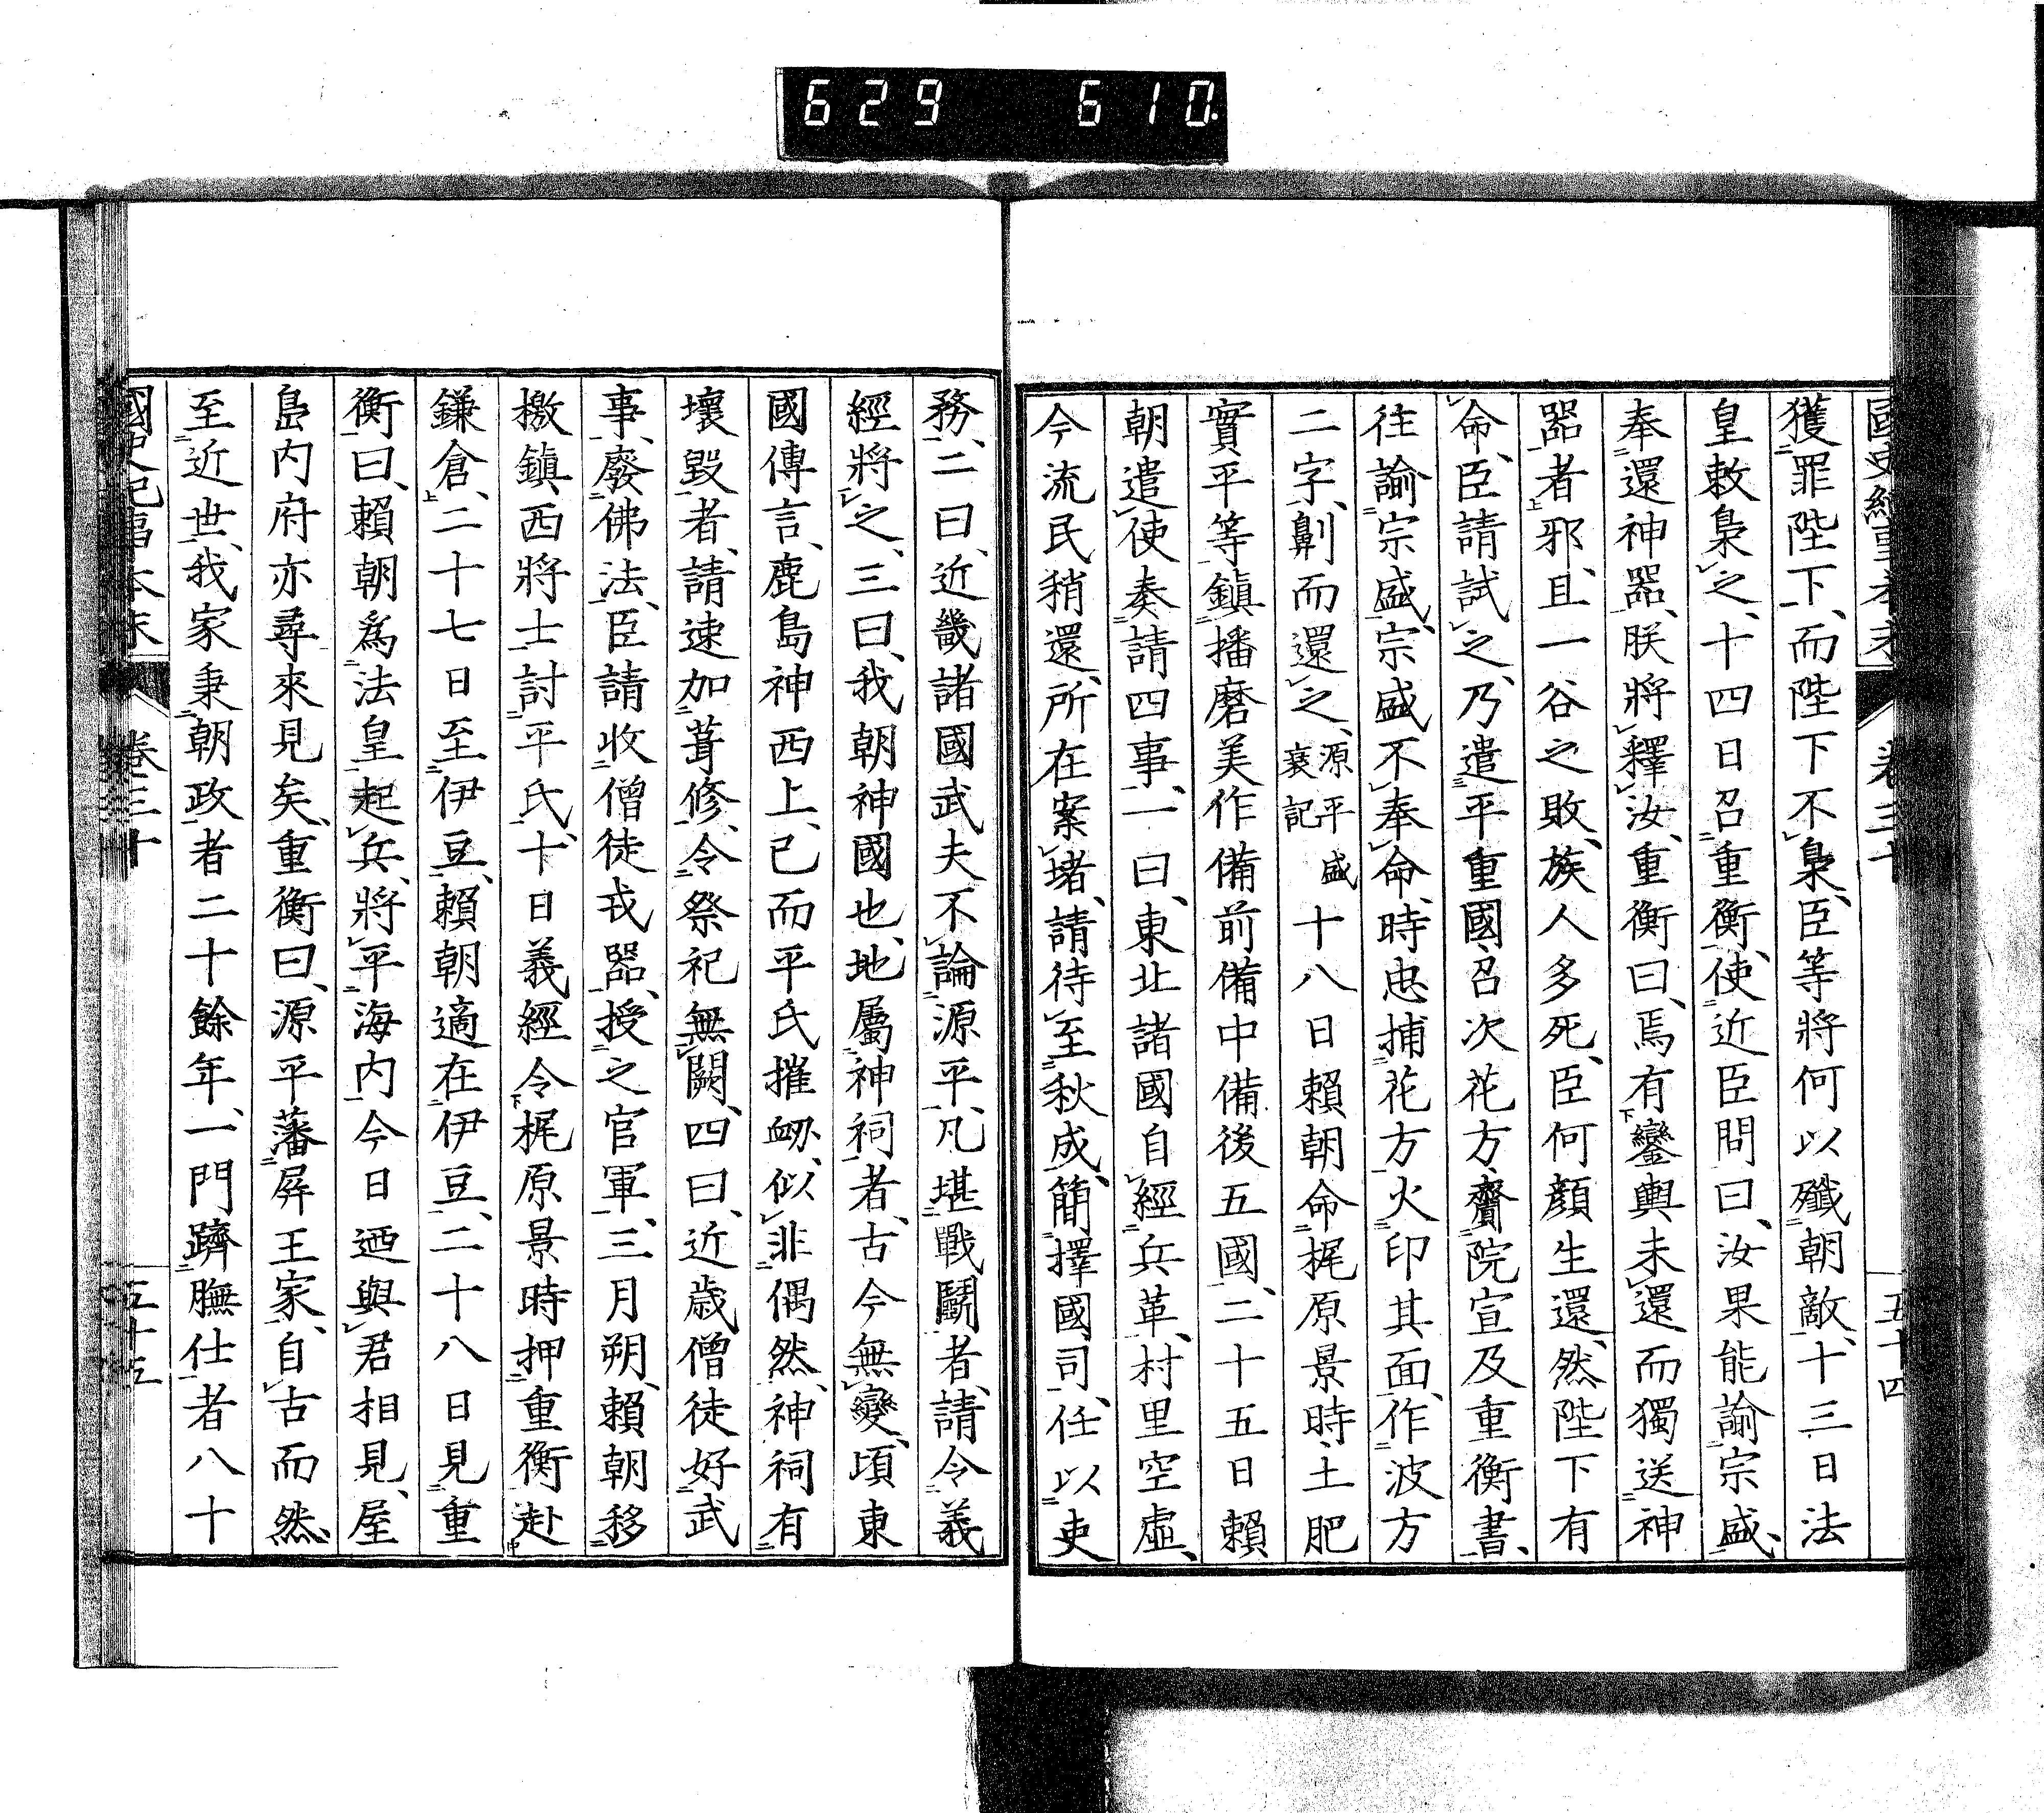 629 610.
國史紀事本末 卷三十 五十四
獲罪陛下、而陛下不梟、臣等將何以殲朝敵、十三日法
皇敕梟之、十四日召重衡、使近臣問曰、汝果能諭宗盛、
奉還神器、朕將釋汝、重衡曰、焉有鑾輿未還而獨送神
器者邪、且一谷之敗、族人多死、臣何顔生還、然陛下有
命、臣請試之、乃遣平重國、召次花方、齎院宣及重衡書、
往諭宗盛、宗盛不奉命、時忠捕花方、火印其面、作波方
二字、劓而還之、源平盛衰記 十八日賴朝命梶原景時、土肥
實平等、鎮播磨美作備前備中備後五國、二十五日賴
朝遣使奏請四事、一曰、東北諸國自經兵革、村里空虛、
今流民稍還、所在案堵、請待至秋成、簡擇國司、任以吏
務、二曰、近畿諸國武夫不論源平、凡堪戰鬭者、請令義
經將之、三曰、我朝神國也、地屬神祠者、古今無變、頃東
國傳言、鹿島神西上、已而平氏摧衂、似非偶然、神祠有
壞毀者、請速加葺修、令祭祀無闕、四曰、近歲僧徒好武
事、廢佛法、臣請收僧徒戎器、授之官軍、三月朔、賴朝移
檄鎮西將士、討平氏、十日義經令梶原景時押重衡赴
鎌倉、二十七日至伊豆、賴朝適在伊豆、二十八日見重
衡曰、賴朝爲法皇起兵、將平海内今日迺與君相見、屋
島内府亦尋來見矣、重衡曰、源平藩屏王家、自古而然、
至近世、我家秉朝政者二十餘年、一門躋膴仕者八十
國史紀事本末 卷三十 五十五